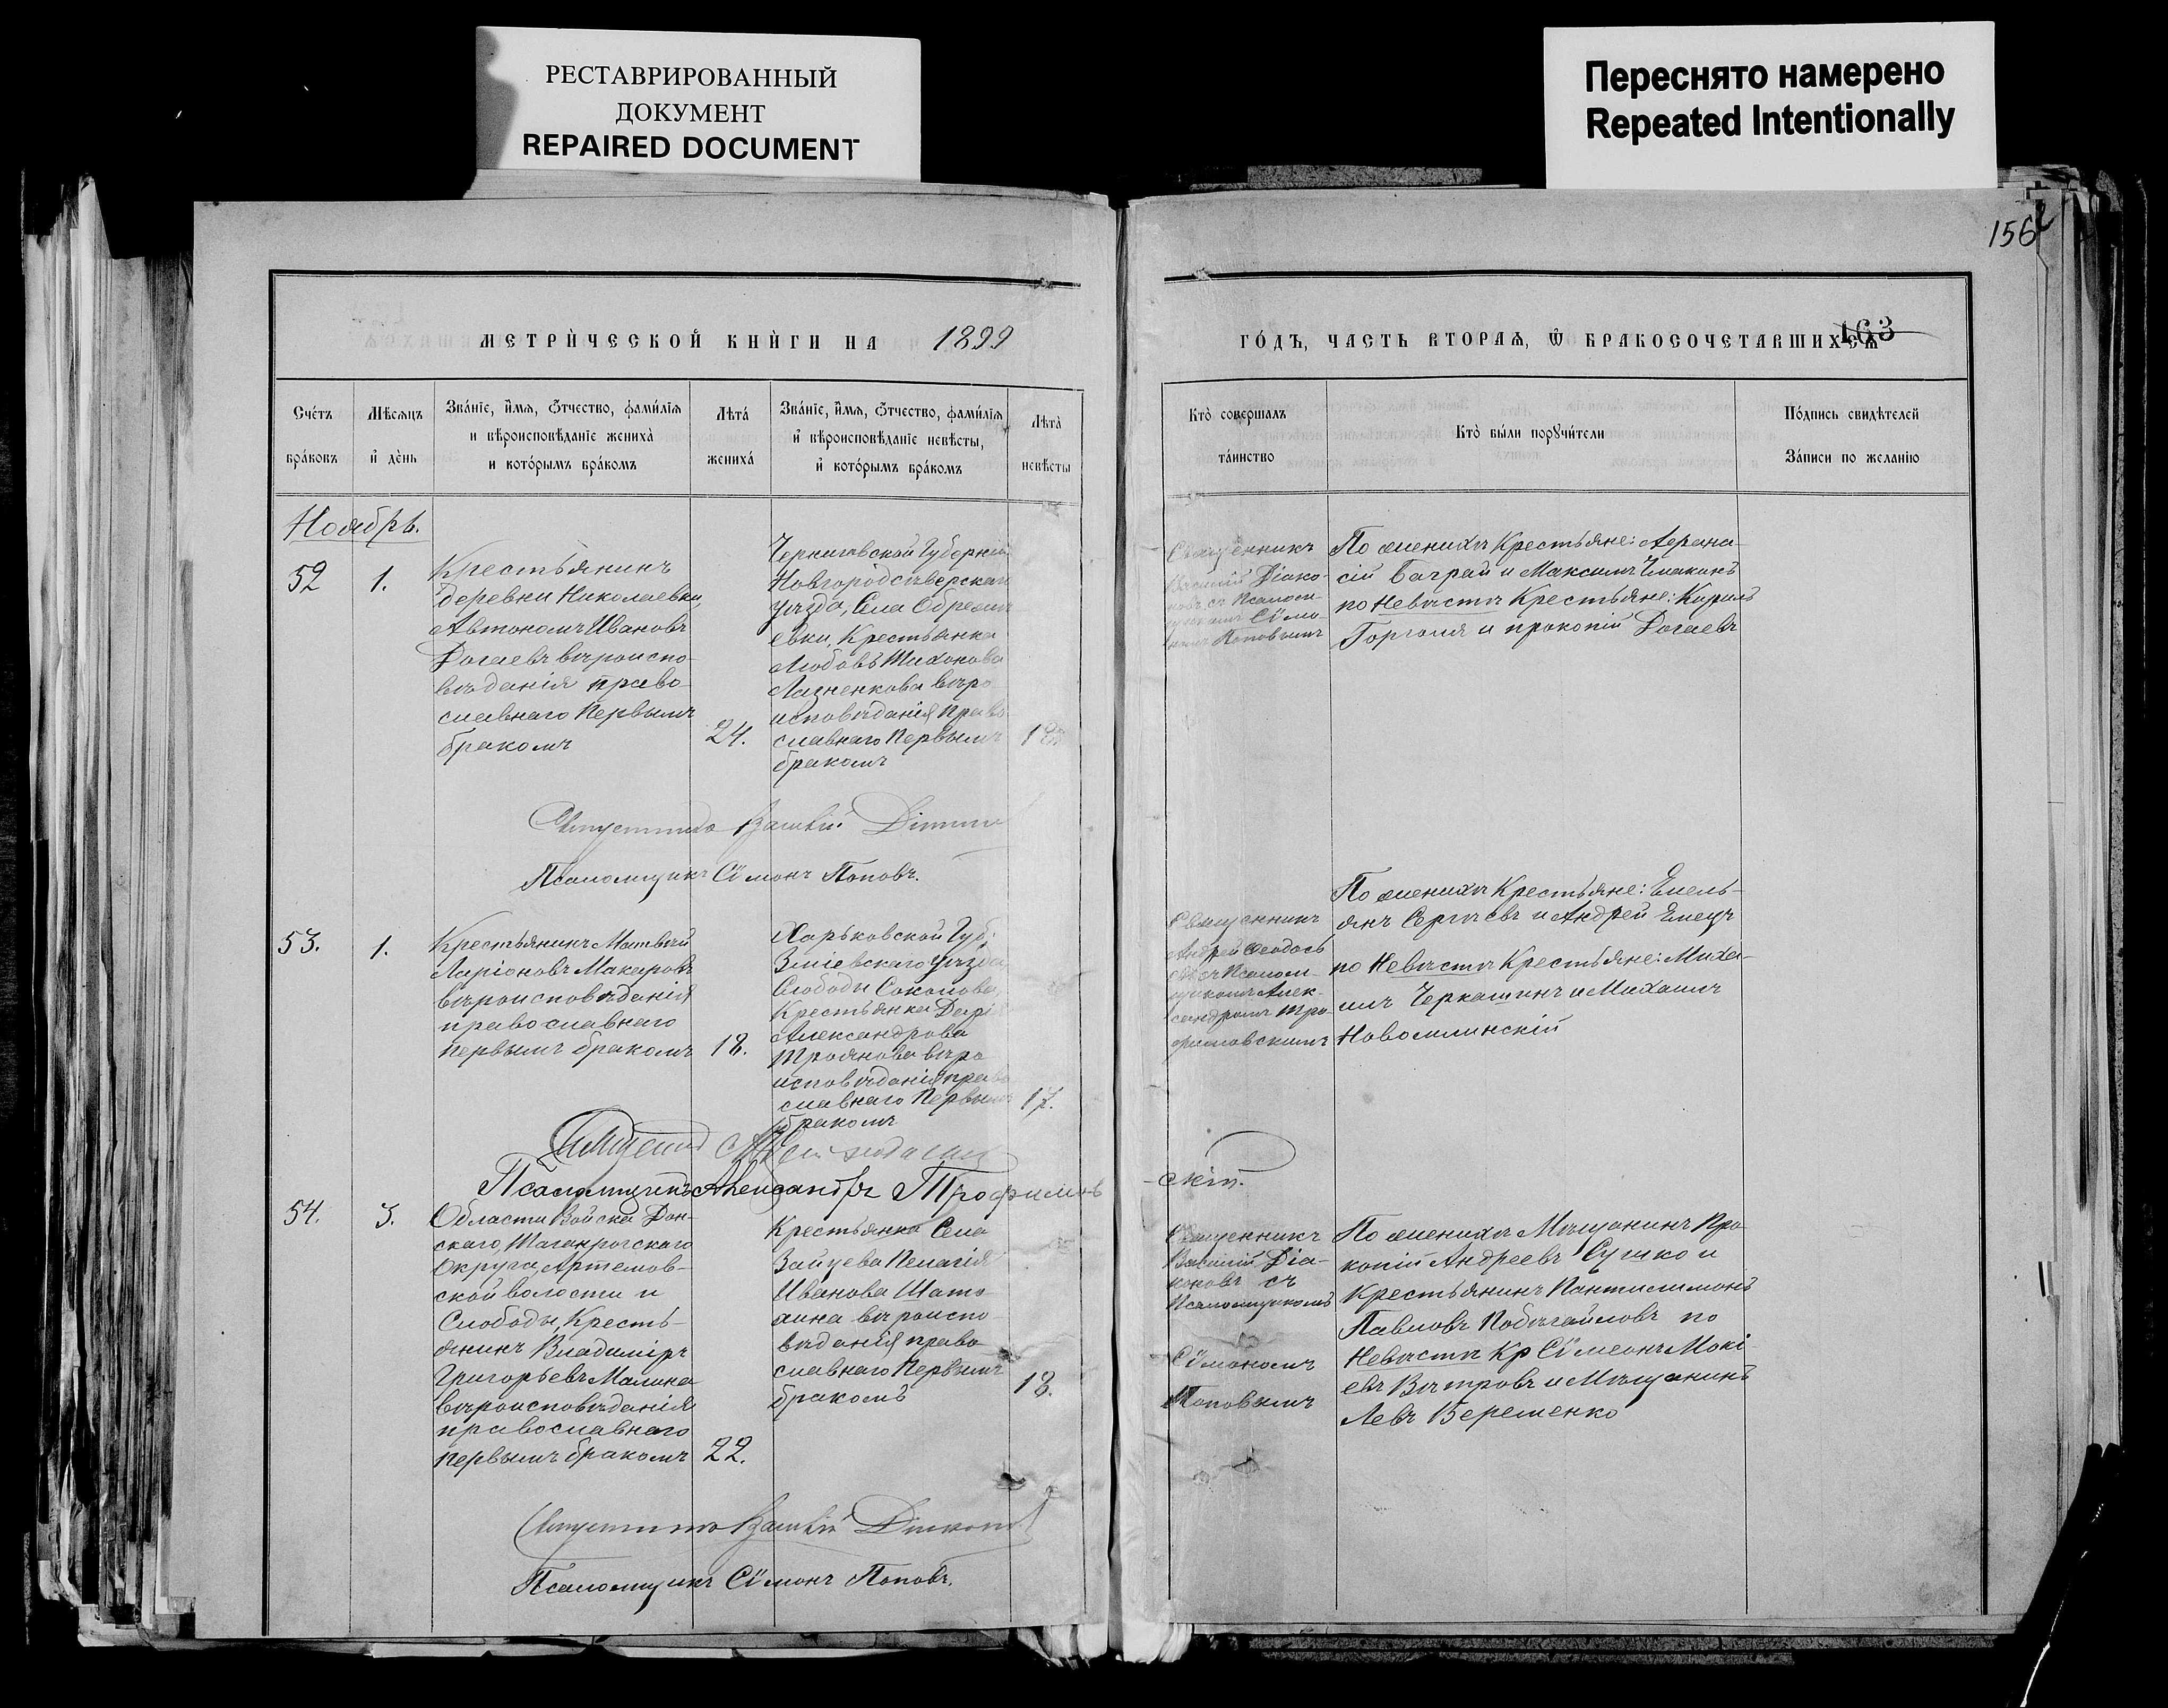 РЕСТАВРИРОВАННЫЙ
ДОКУМЕНТ
REPAIRED DOCUMENT
Переснято намерено
Repeated Intentionally
156
163
МЕТРИ́ЧЕСКОЙ КНИ́ГИ НА 1899
ГО́ДЪ, ЧАСТЬ ВТОРАѦ, Ѡ҆ БРАКОСОЧЕТАВШИХСѦ
Сче́тъ
бра́ковъ
Мѣ́сѧцъ
и҆ де́нь
Зва́нїе, и҆́мѧ, ѻ҆́тчество, фами́лїѧ
и҆ вѣроисповѣ́данїе жениха̀
и҆ кото́рымъ бра́комъ
Лѣ́та̀
жениха́
Зва́нїе, и҆́мѧ, ѻ҆́тчество, фами́лїѧ
и҆ вѣроисповѣ́данїе невѣ́сты,
и҆ кото́рымъ бра́комъ
Лѣ́та̀
невѣ́сты
Кто̀ соверша́лъ
та́инство
Кто̀ бы́ли порꙋчи́тели
По́дпись свидѣ́телей
За́писи по жела́нїю
Ноябрь.
52
1.
Крестьянинъ
деревни Николаевки,
Автономъ Ивановъ
Догаевъ вѣроиспо-
вѣданія право-
славнаго первымъ
бракомъ
24.
Черниговской Губерніи
Новгородсѣверскаго
уѣзда, Села
евки, Крестьянка
Любовь Тихонова
Лазненкова вѣро
исповѣданія право
славнаго Первымъ
бракомъ
18
Священникъ
Василій Діако-
новъ съ Псалом-
щикомъ Сѵмо-
номъ Поповымъ
По женихѣ Крестьяне: Афана-
сій Баграй и Максимъ
по Невѣстѣ Крестьяне: Кирилъ
Горголя и Прокопій Догаевъ
Василій
Псаломщикъ Сѵмонъ Поповъ.
53.
1.
Крестьянинъ Матвѣй
Ларіоновъ Макаровъ
вѣроисповѣданія
православнаго
первымъ бракомъ
18.
Харьковской Губ:
Зміевскаго уѣзда,
Слободы Соколова,
Крестьянка Дарія
Александрова
Троянова вѣро
исповѣданія право
славнаго Первымъ
бракомъ
17.
Священникъ
Андрей Ѳеодось
евъ съ Псалом-
щикомъ Алек-
сандромъ Тро-
фимовскимъ
По женихѣ Крестьяне: Емель-
янъ Сергѣевъ и Андрей Емецъ
по Невѣстѣ Крестьяне: Миха-
илъ Черкашинъ и Михаилъ
Новомлинскій
Псаломщикъ Александръ Трофимов-
скій.
54.
3.
Области Войска Дон-
скаго, Таганрогскаго
Округа, Артемов-
ской волости и
Слободы, Кресть-
янинъ Владиміръ
Григорьевъ Малина
вѣроисповѣданія
православнаго
первымъ бракомъ
22.
Крестьянка Села
Зайцева Пелагія
Иванова Шато-
хина вѣроиспо-
вѣданія право-
славнаго Первымъ
бракомъ
18.
Священникъ
Василій Діа-
коновъ съ
Псаломщикомъ
Сѵмономъ
Поповымъ
По женихѣ Мѣщанинъ Про-
копій Андреевъ Сушко и
Крестьянинъ Пантилимонъ
Павловъ Побѣгайловъ по
Невѣстѣ Кр Сѵмеонъ Мокі-
евъ Вѣтровъ и Мѣщанинъ
Левъ Беременко
Василій Діаконов
Псаломщикъ Сѵмонъ Поповъ.